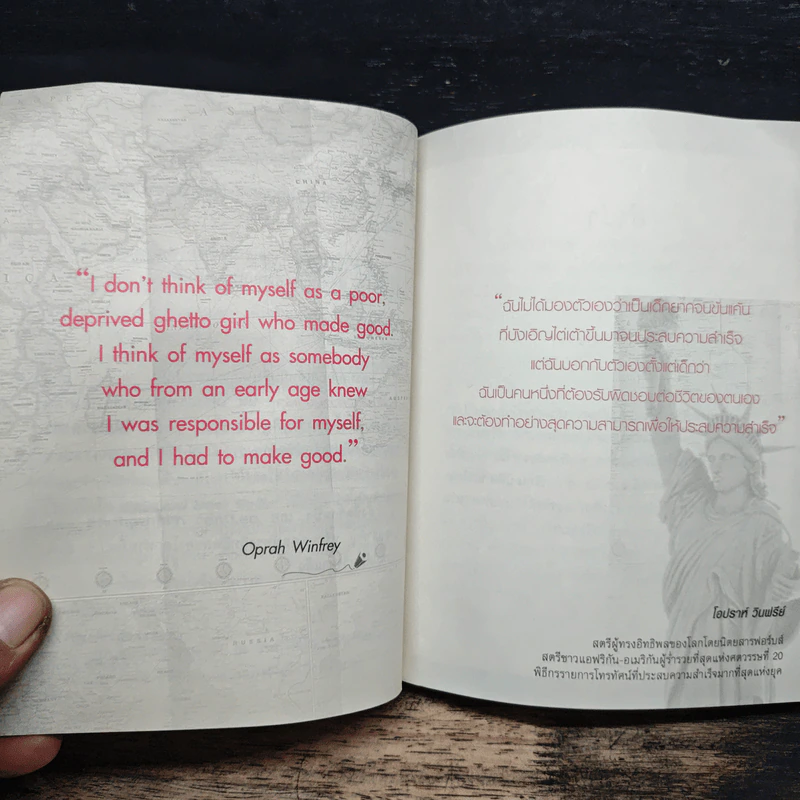 CHINA
"I don't think of myself as a poor,
deprived ghetto girl who made good.
I think of myself as somebody
who from an early age knew
I was responsible for myself,
and I had to make good."
Oprah Winfrey
RUSSIA
"ฉันไม่ได้มองตัวเองว่าเป็นเด็กยากจนข้นแค้น
ที่บังเอิญไต่เต้าขึ้นมาจนประสบความสำเร็จ
แต่ฉันบอกกับตัวเองตั้งแต่เด็กว่า
ฉันเป็นคนหนึ่งที่ต้องรับผิดชอบต่อชีวิตของตนเอง
และจะต้องทำอย่างสุดความสามารถเพื่อให้ประสบความสำเร็จ"
โอปราห์ วินฟรีย์
สตรีผู้ทรงอิทธิพลของโลกโดยนิตยสารฟอร์บส์
สตรีชาวแอฟริกัน-อเมริกันผู้ร่ำรวยที่สุดแห่งศตวรรษที่ 20
พิธีกรรายการโทรทัศน์ที่ประสบความสำเร็จมากที่สุดแห่งยุค